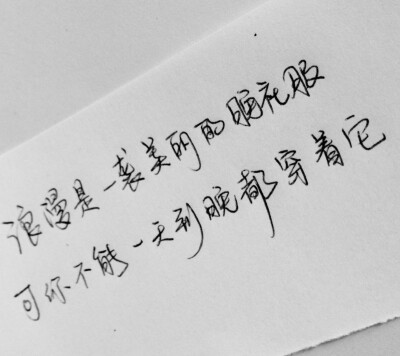 浪漫是一袭美丽的晚礼服
可你不能一天到晚都穿着它